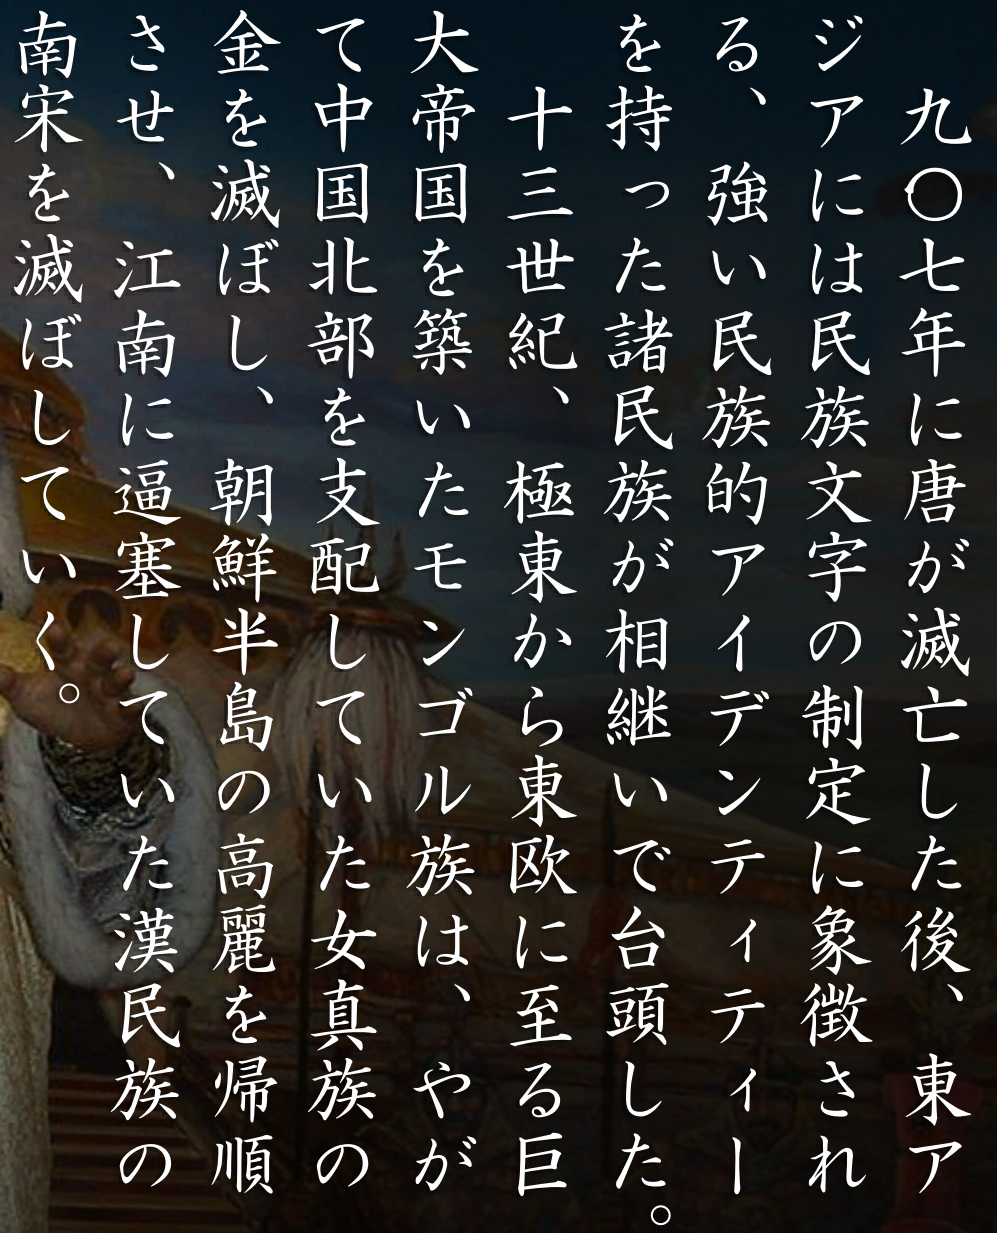 九〇七年に唐が滅亡した後、東ア
ジアには民族文字の制定に象徴され
る、強い民族的アイデンティティー
を持った諸民族が相継いで台頭した。
　十三世紀、極東から東欧に至る巨
大帝国を築いたモンゴル族は、やが
て中国北部を支配していた女真族の
金を滅ぼし、朝鮮半島の高麗を帰順
させ、江南に逼塞していた漢民族の
南宋を滅ぼしていく。